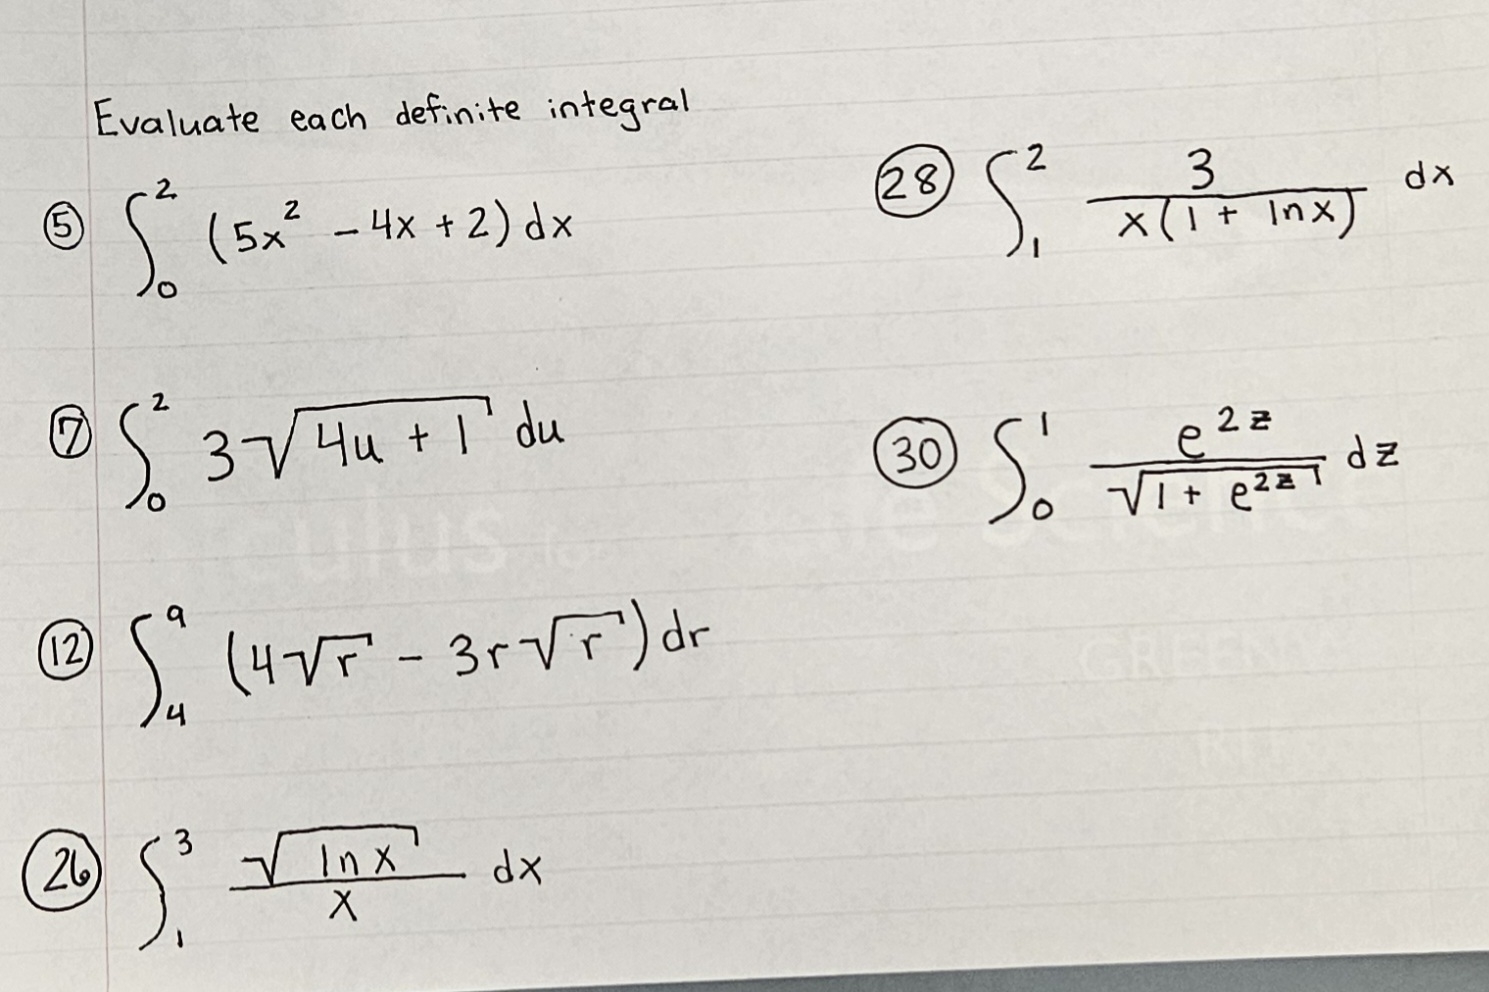 Evaluate each definite integral
⑤ ∫₀² (5x² - 4x + 2) dx
⑦ ∫₀² 3√(4u + 1) du
⑫ ∫₄⁹ (4√r - 3r√r) dr
㉖ ∫₁³ √(ln x) / x dx
㉘ ∫₁² 3 / (x(1 + ln x)) dx
㉚ ∫₀¹ e^(2z) / √(1 + e^(2z)) dz